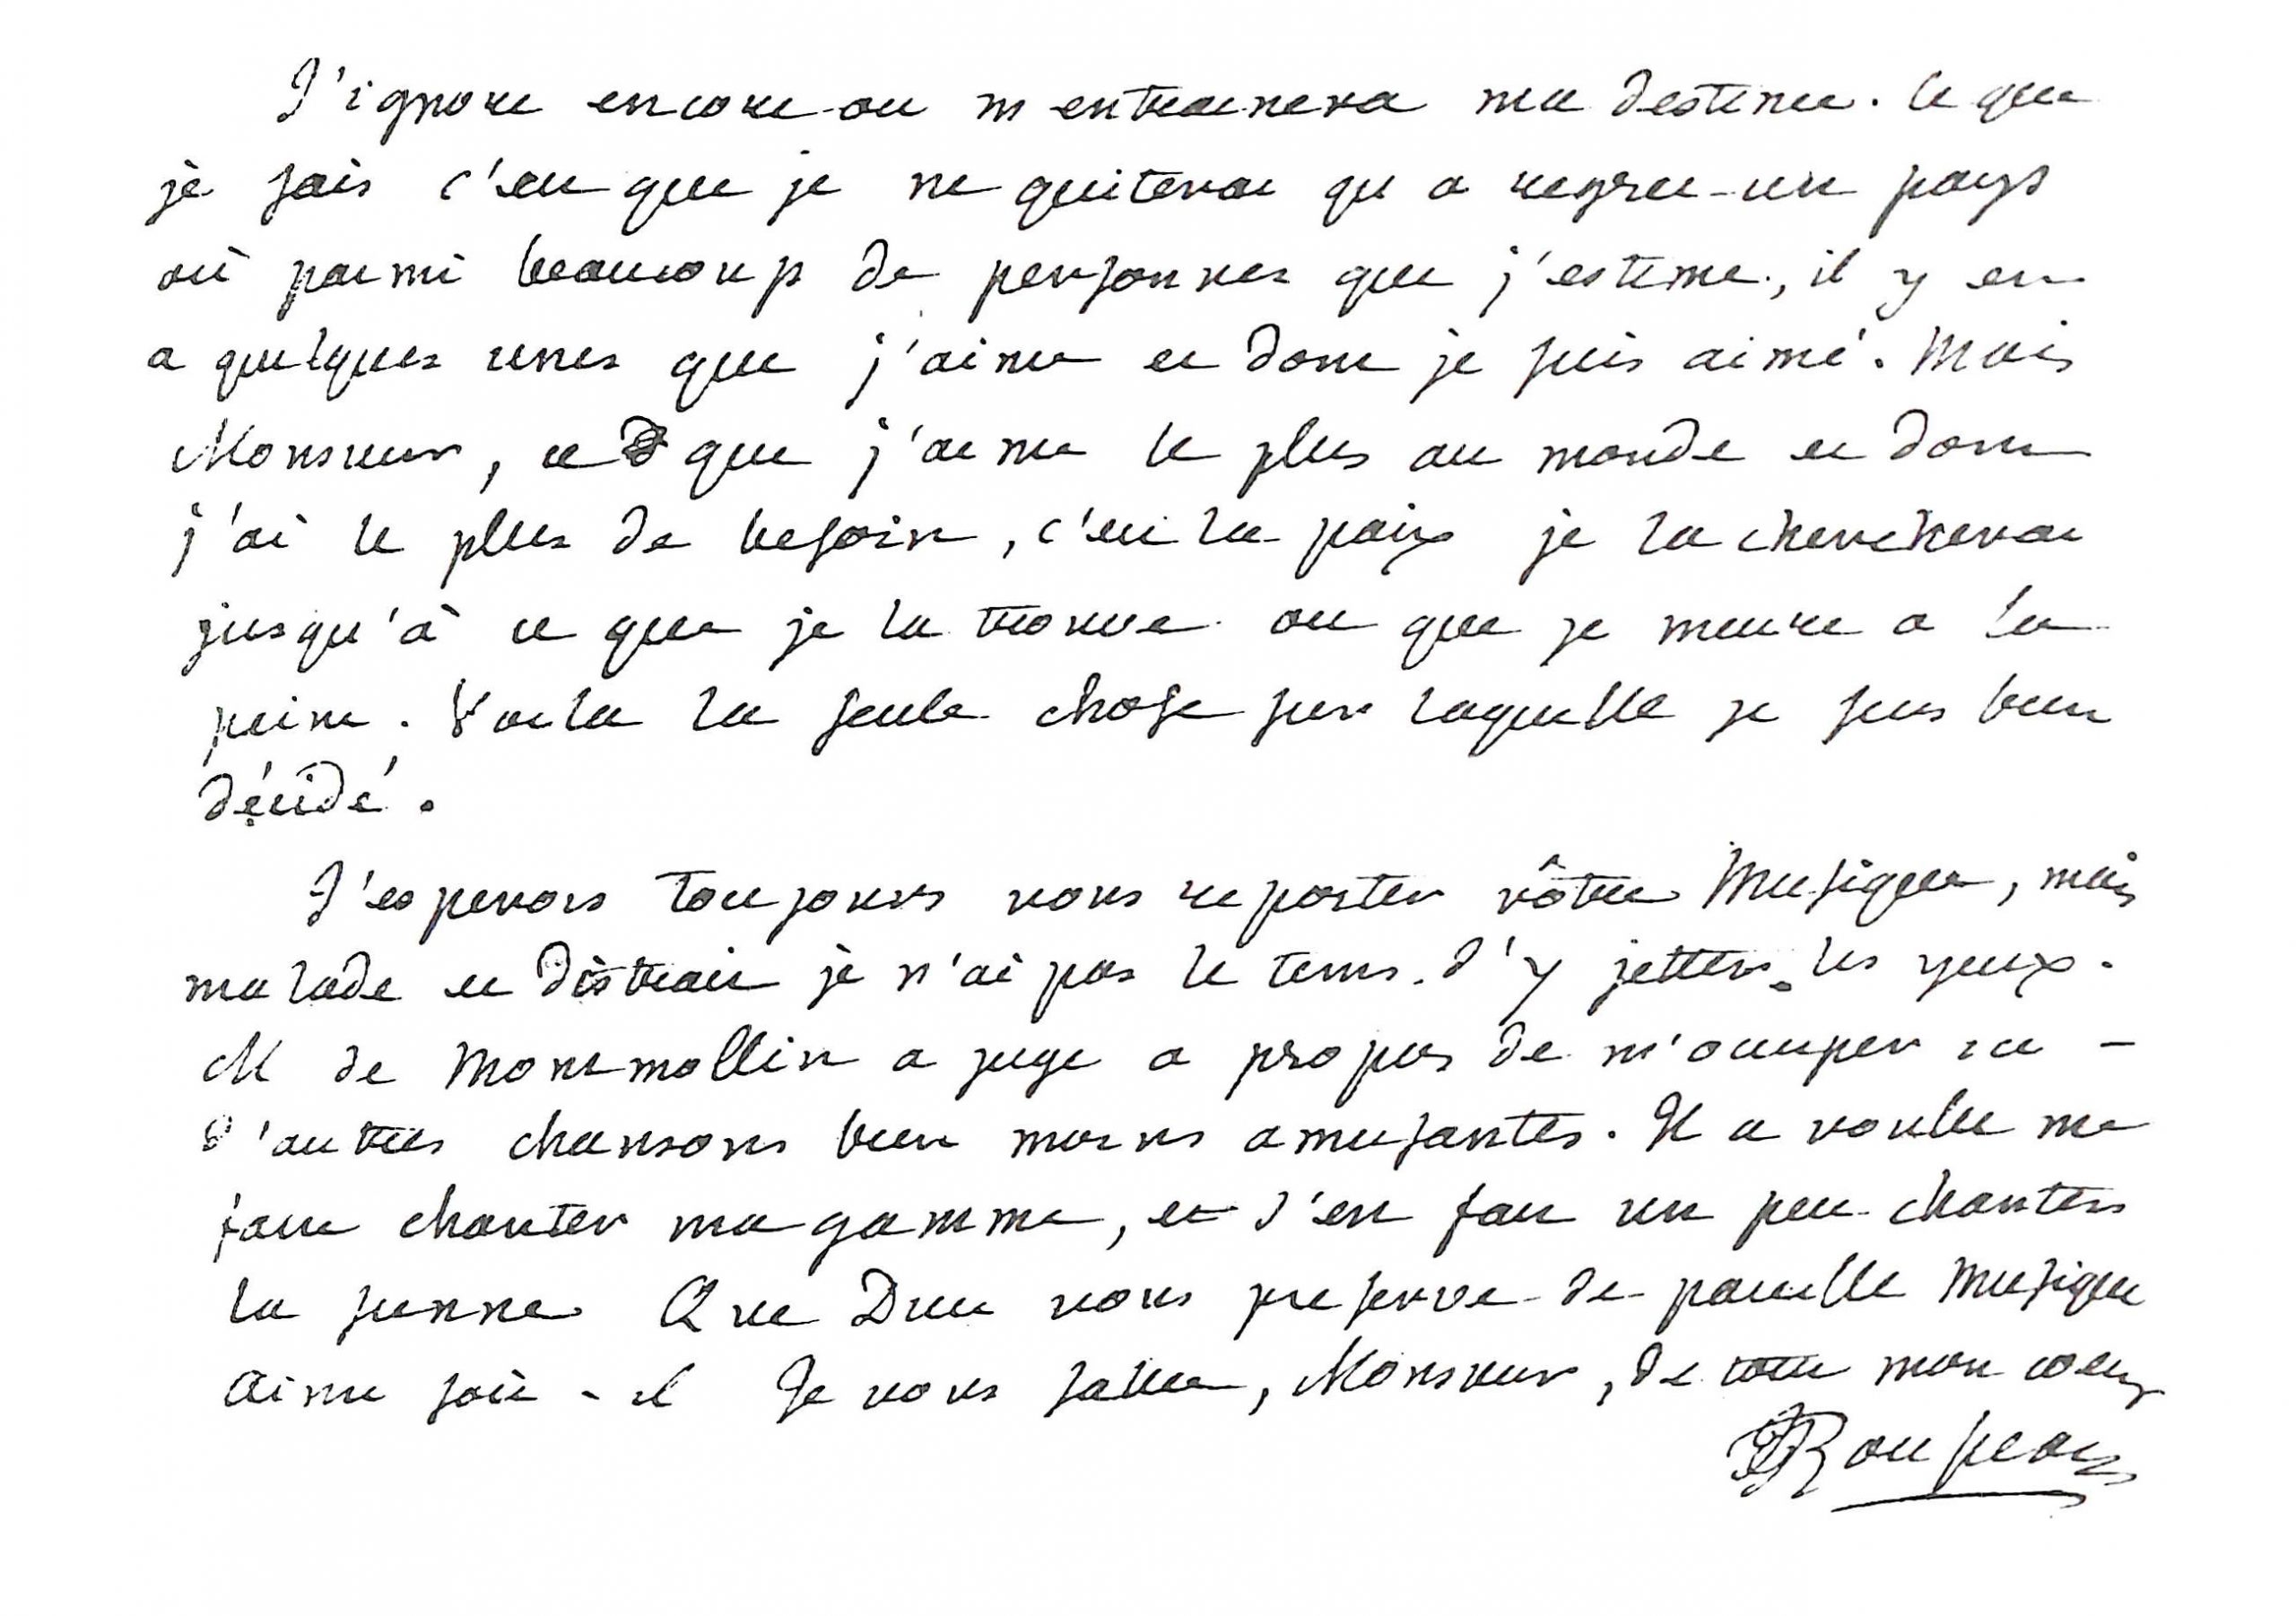 J'ignore encore ou m'entrainera ma destinée. Ce que
je sais c'est que je ne quiterai qu'a regret un pays
où parmi beaucoup de personnes que j'estime, il y en
a quelques unes que j'aime et dont je suis aimé. Mais
Monsieur, ce que j'aime le plus au monde et dont
j'ai le plus de besoin, c'est la paix je la chercherai
jusqu'à ce que je la trouve ou que je meure a la
peine. Voila la seule chose sur laquelle je suis bien
décidé.
J'esperois toujours vous reporter vôtre Musique, mais
malade et distrait je n'ai pas le tems d'y jetter les yeux.
M de Montmollin a jugé a propos de m'occuper ici
d'autres chansons bien moins amusantes. Il a voulu me
faire chanter ma gamme, et s'est fait un peu chanter
la sienne Que Dieu nous preserve de pareille Musique
Ainsi soit-il Je vous salue, Monsieur, de tout mon coeur
JJRousseau